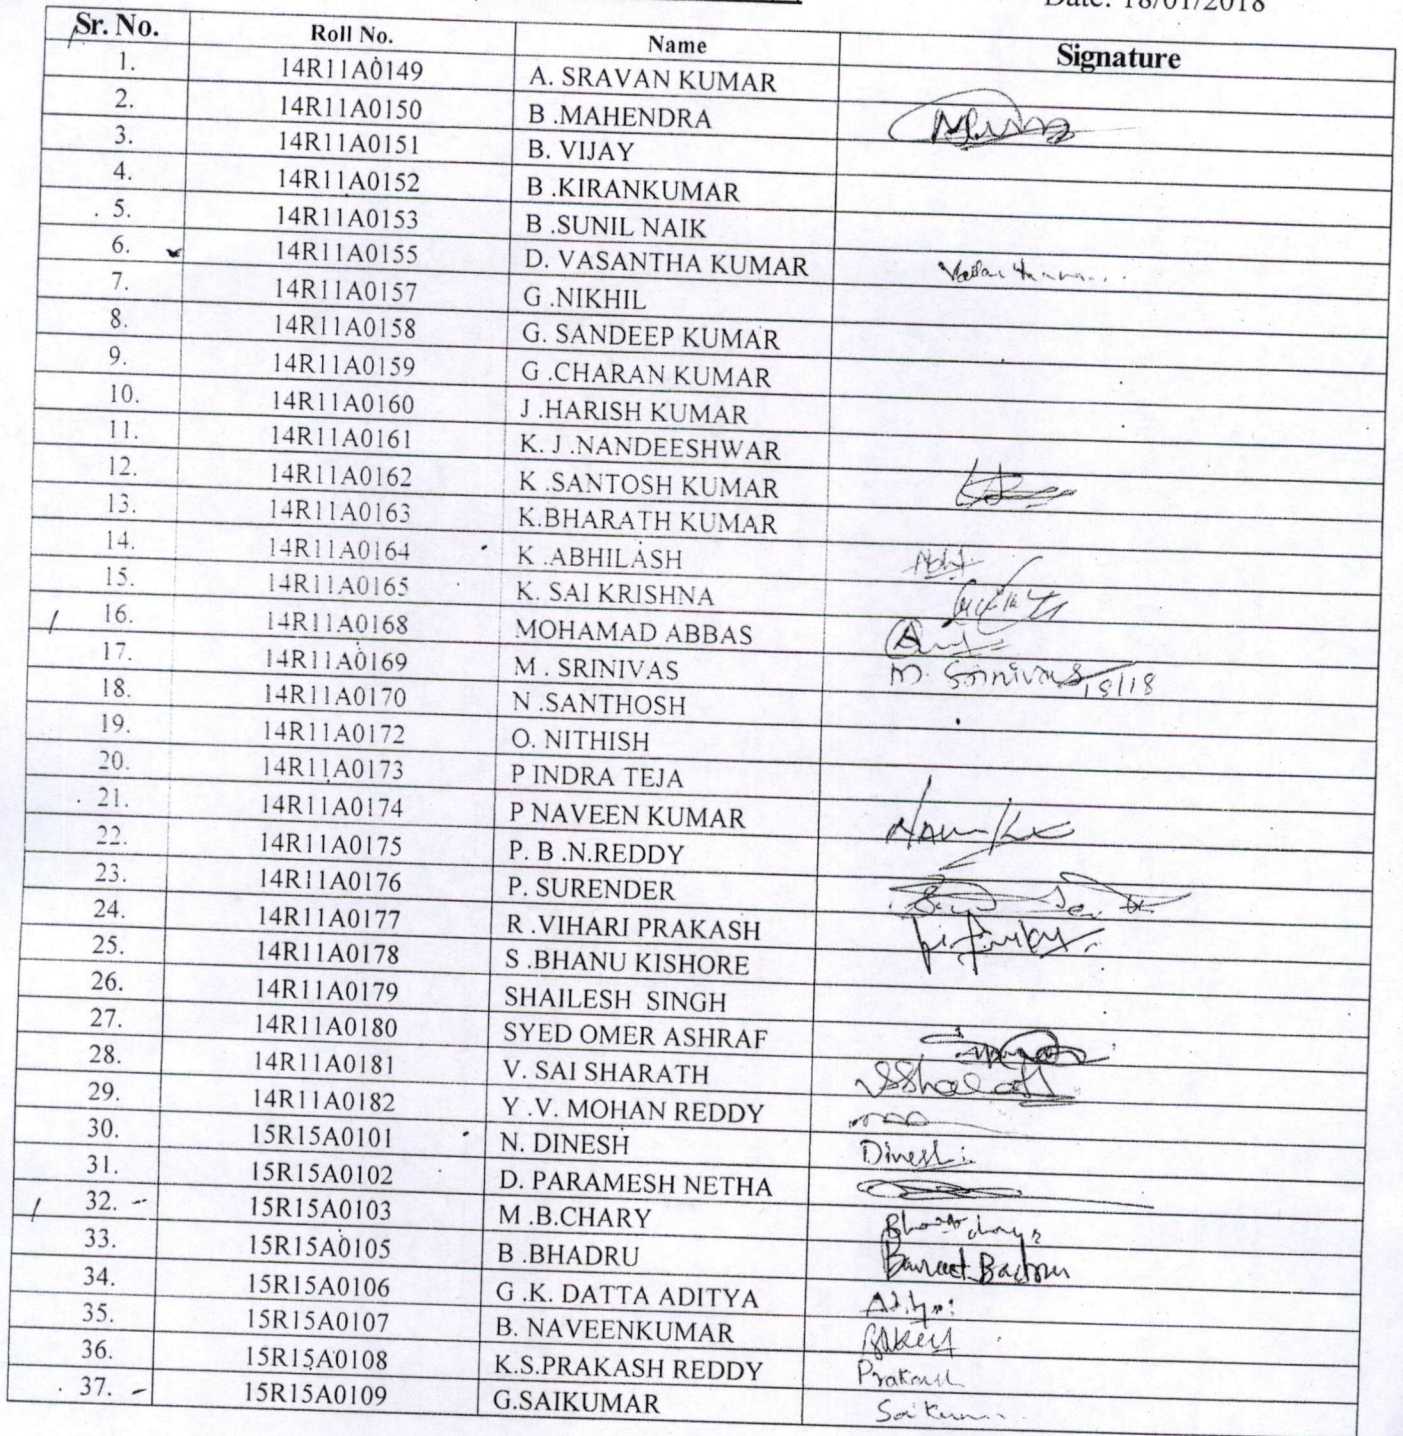 Date: 18/01/2018
Sr. No. Roll No. Name Signature
1. 14R11A0149 A. SRAVAN KUMAR
2. 14R11A0150 B .MAHENDRA
3. 14R11A0151 B. VIJAY
4. 14R11A0152 B .KIRANKUMAR
5. 14R11A0153 B .SUNIL NAIK
6. 14R11A0155 D. VASANTHA KUMAR
7. 14R11A0157 G .NIKHIL
8. 14R11A0158 G. SANDEEP KUMAR
9. 14R11A0159 G .CHARAN KUMAR
10. 14R11A0160 J .HARISH KUMAR
11. 14R11A0161 K. J .NANDEESHWAR
12. 14R11A0162 K .SANTOSH KUMAR
13. 14R11A0163 K.BHARATH KUMAR
14. 14R11A0164 K .ABHILASH
15. 14R11A0165 K. SAI KRISHNA
16. 14R11A0168 MOHAMAD ABBAS
17. 14R11A0169 M . SRINIVAS M. Srinivas
18. 14R11A0170 N .SANTHOSH
19. 14R11A0172 O. NITHISH
20. 14R11A0173 P INDRA TEJA
21. 14R11A0174 P NAVEEN KUMAR
22. 14R11A0175 P. B .N.REDDY
23. 14R11A0176 P. SURENDER
24. 14R11A0177 R .VIHARI PRAKASH
25. 14R11A0178 S .BHANU KISHORE
26. 14R11A0179 SHAILESH SINGH
27. 14R11A0180 SYED OMER ASHRAF
28. 14R11A0181 V. SAI SHARATH
29. 14R11A0182 Y .V. MOHAN REDDY
30. 15R15A0101 N. DINESH Dinesh
31. 15R15A0102 D. PARAMESH NETHA
32. 15R15A0103 M .B.CHARY
33. 15R15A0105 B .BHADRU
34. 15R15A0106 G .K. DATTA ADITYA
35. 15R15A0107 B. NAVEENKUMAR
36. 15R15A0108 K.S.PRAKASH REDDY Prakash
37. 15R15A0109 G.SAIKUMAR Sai Kumar